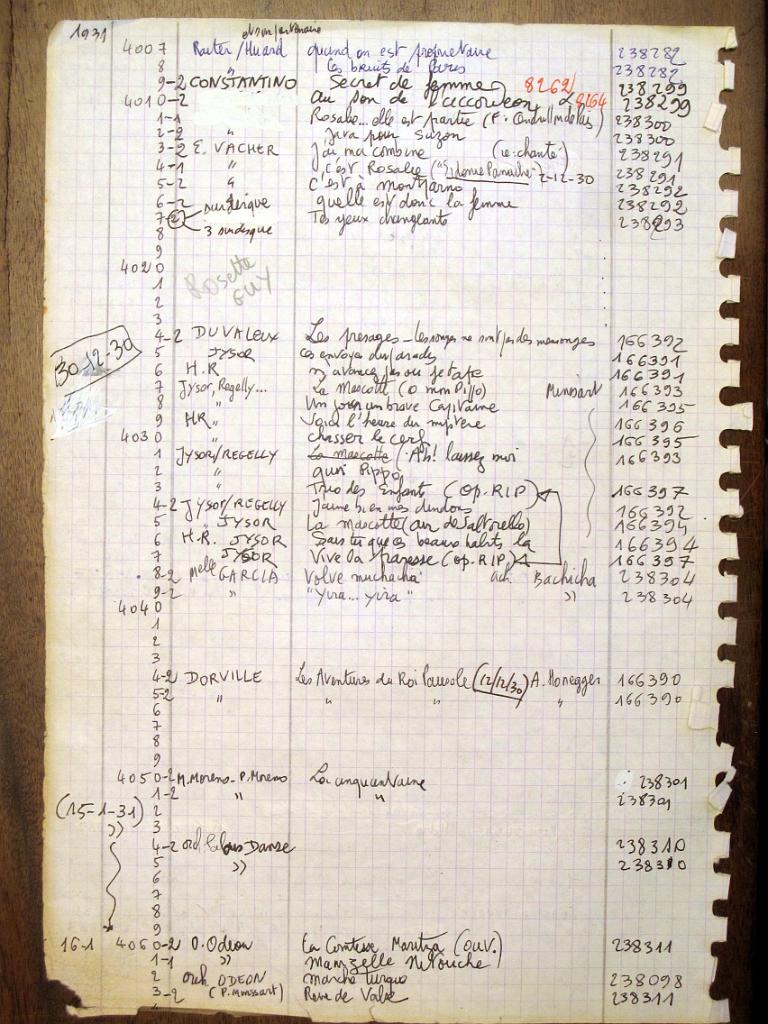 1931
4007 Rauter/Huard et son partenaire quand on est propriétaire 238282
8 " Les bruits de Paris 238282
9-2 CONSTANTINO Secret de femme 8262/ 238299
4010-2 au son de l'accordéon 8264 238299
1-1 Rosalie... elle est partie 238300
2-2 " Java pour Suzon 238300
3-2 E. VACHER J'ai ma combine (re: chanté) 238291
4-1 " C'est Rosalie 2-12-30 238291
5-2 " C'est à 238292
6-2 " quelle est donc la femme 238292
7-2 Tes yeux changeants 238293
8 3
9
4020 Rosette GUY
1
2
3
4-2 DUVALEUX Les présages - les songes ne sont pas des mensonges 166392
5 JYSOR Ces envoyés du paradis 166391
30-12-30
6 H.R n'avancez pas ou je tape 166391
7 Jysor, Regelly... La Mascotte (O mon Pippo) Minssart 166393
8 " Un jour un brave Capitaine 166395
9 HR " Voici l'heure du mystère 166396
4030 " chasser le cerf 166395
1 JYSOR/REGELLY La mascotte (Ah! laissez moi 166393
2 " quoi Pippo
3 " Trio des Enfants (OP. RIP) 166397
4-2 JYSOR/REGELLY J'aime bien mes dindons 166392
5 " JYSOR La mascotte (air de Saltarello) 166394
6 H.R. JYSOR Sais tu que ces beaux habits là 166394
7 JYSOR Vive la paresse (OP. RIP) 166397
8-2 Melle GARCIA Volve muchacha orch. Bachicha 238304
9-2 " "Yira... yira" " 238304
4040
1
2
3
4-2 DORVILLE Les Aventures du Roi Pausole (12/12/30) A. Honegger 166390
5-2 " " " " 166390
6
7
8
9
4050-2 M. Moreno - P. Moreno La cinquantaine 238301
1-2 " " 238301
(15-1-31) 2
" 3
4-2 Danse 238310
5 " 238310
6
7
8
9
16-1 4060-2 O. Odéon La Comtesse Maritza (OUV.) 238311
1-1 " Mamzelle Nitouche
2 orch ODEON Marche turque 238098
3-2 (P. Minssart) Rêve de Valse 238311